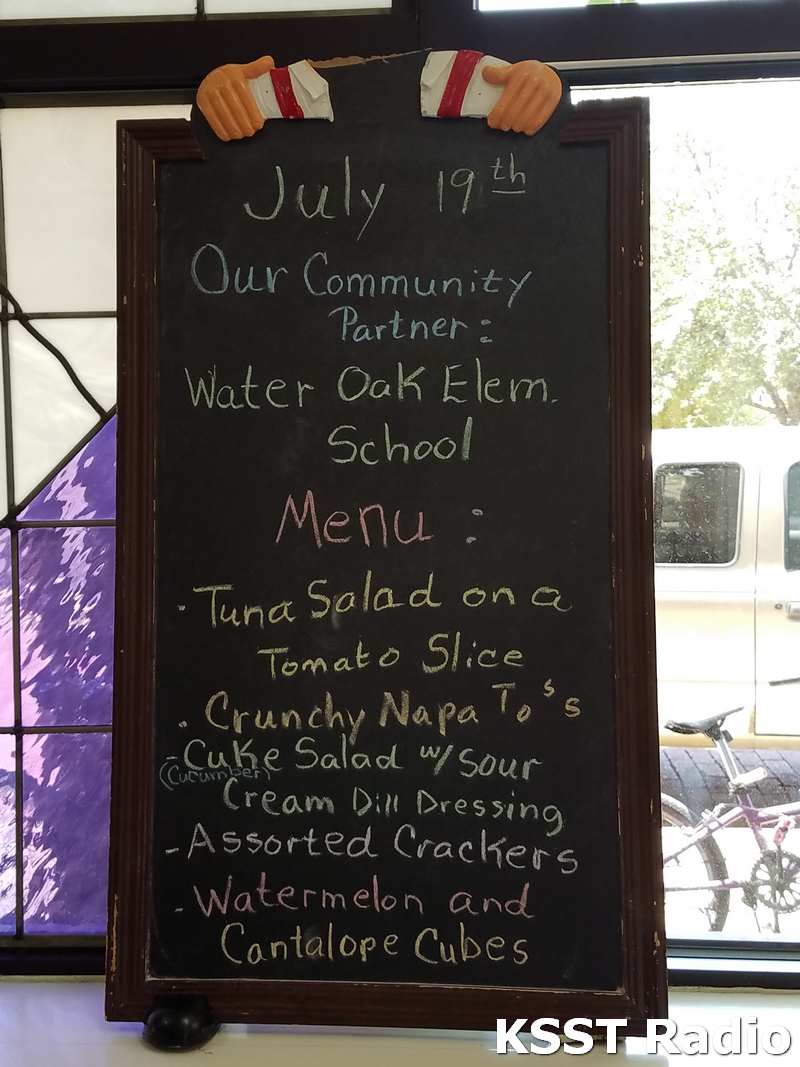 July 19th
Our Community
Partner:
Water Oak Elem.
School
Menu:
· Tuna Salad on a
Tomato Slice
· Crunchy Napa To's s
- Cuke Salad w/ Sour
(Cucumber)
Cream Dill Dressing
- Assorted Crackers
- Watermelon and
Cantalope Cubes
KSST Radio